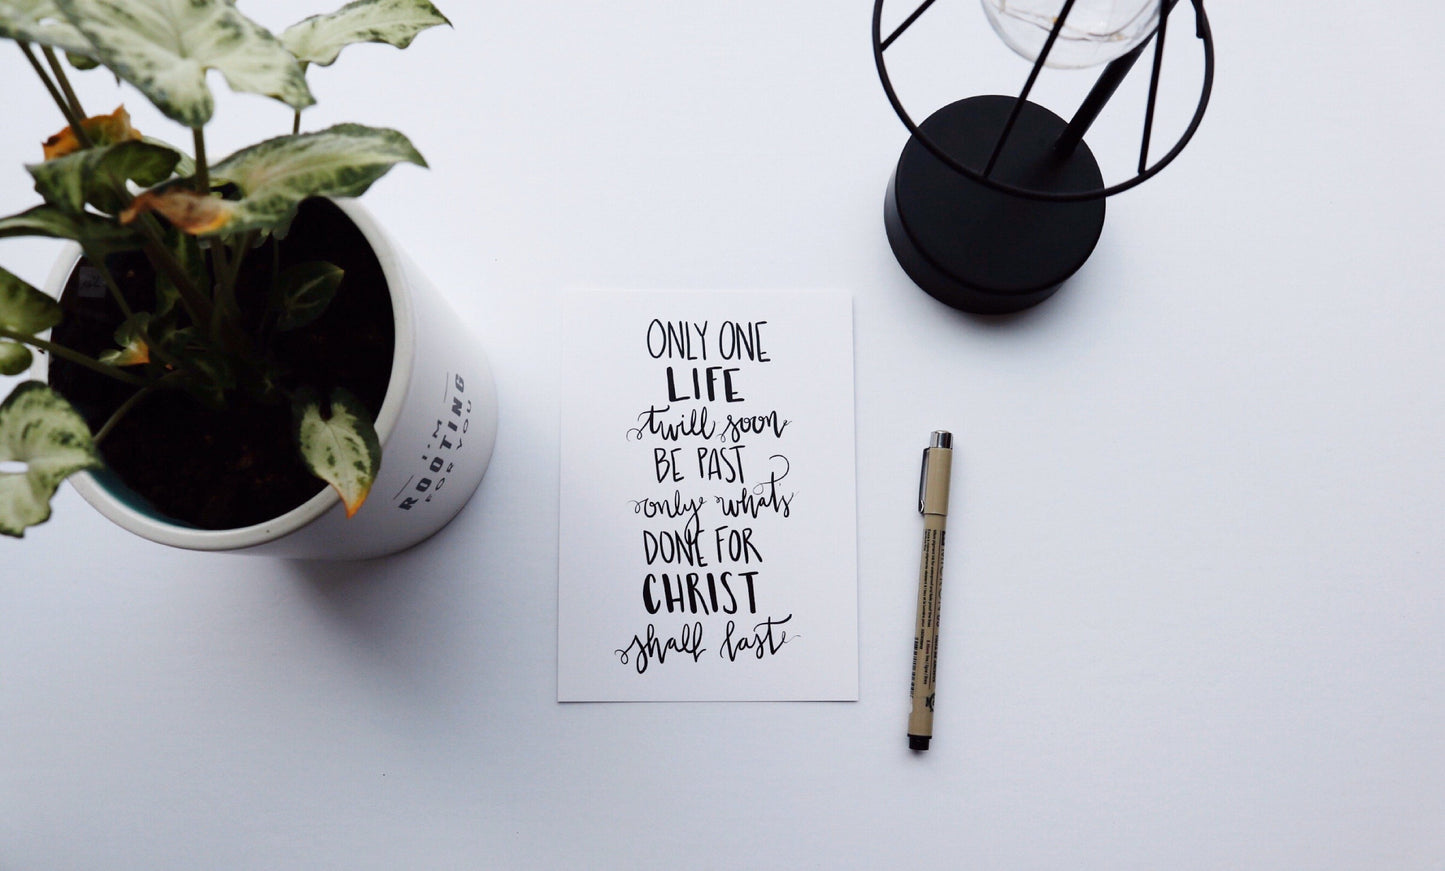 I'M
ROOTING
FOR YOU
ONLY ONE
LIFE
twill soon
BE PAST
only what's
DONE FOR
CHRIST
shall last